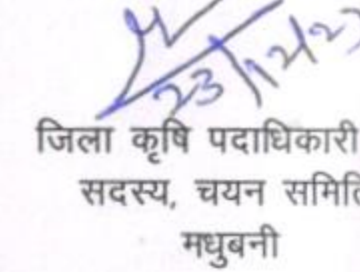 23/12/23
जिला कृषि पदाधिकारी
सदस्य, चयन समिति
मधुबनी